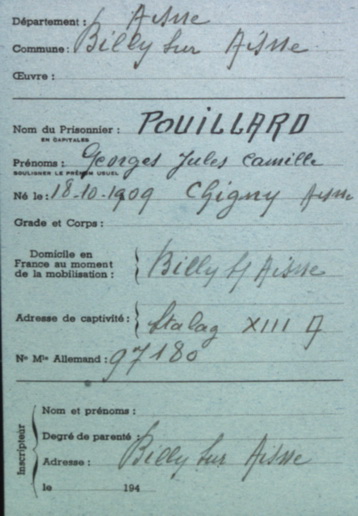 Département : Aisne
Commune : Billy sur Aisne
Œuvre :
Nom du Prisonnier : POUILLARD
EN CAPITALES
Prénoms : Georges Jules Camille
SOULIGNER LE PRÉNOM USUEL
Né le : 18-10-1909 Chigny Aisne
Grade et Corps :
Domicile en
France au moment
de la mobilisation : Billy s/ Aisne
Adresse de captivité : Stalag XIII A
No Mle Allemand : 97180
Inscripteur
Nom et prénoms :
Degré de parenté :
Adresse : Billy sur Aisne
le 194